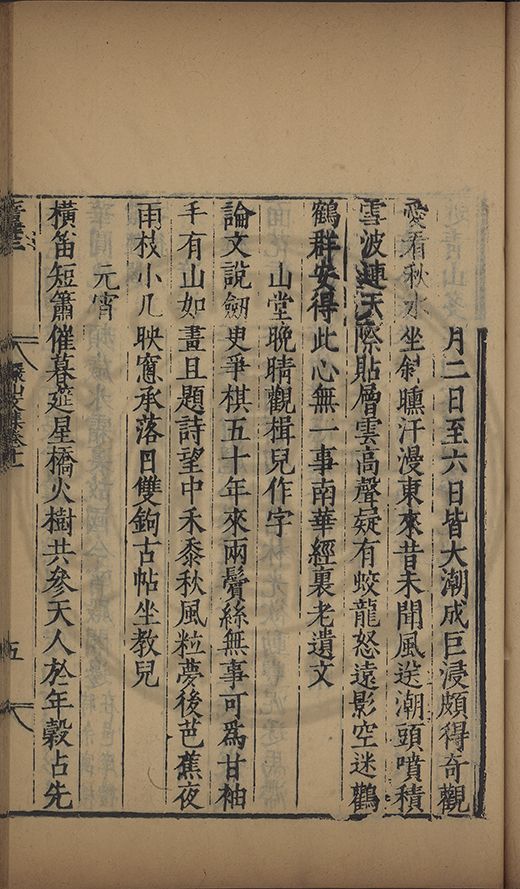 月二日至六日皆大潮成巨浸頗得奇觀
愛看秋水坐斜曛汗漫東來昔未聞風送潮頭噴積
雪波連天際貼層雲高聲疑有蛟龍怒遠影空迷鸛
鶴群安得此心無一事南華經裏老遺文
山堂晚晴觀楫兒作字
論文說劒更爭棋五十年來兩鬢絲無事可為甘袖
手有山如畫且題詩望中禾黍秋風粒夢後芭蕉夜
雨枝小几映窻承落日雙鉤古帖坐教兒
元宵
橫笛短簫催暮筵星橋火樹共參天人於年穀占先
五